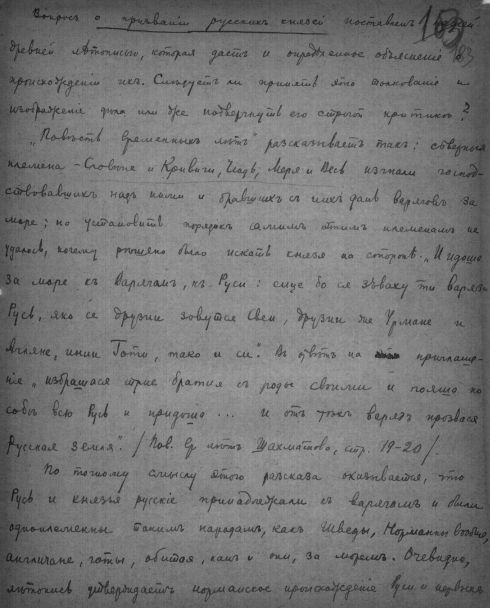 Вопросъ о призваніи русскихъ князей поставленъ нашей
древней лѣтописью, которая даетъ и опредѣленное объясненіе о
происхожденіи ихъ. Слѣдуетъ ли принять это толкованіе и
изображеніе дѣла или же подвергнуть его строгой критикѣ?
„Повѣсть временныхъ лѣтъ" разсказываетъ такъ: сѣверныя
племена - Словѣне и Кривичи, Чудь, Меря и Весь изгнали господ-
ствовавшихъ надъ ними и бравшихъ съ нихъ дань варяговъ за
море; но установить порядокъ самимъ этимъ племенамъ не
удалось, почему рѣшено было искать князя на сторонѣ. „И идоша
за море къ Варягамъ, къ Руси: сице бо ся зъваху ти варязи
Русь, яко се друзии зовутся Свеи, друзии же Урмане и
Агляне, инии Гъти, тако и си". Въ отвѣтъ на приглаше-
ніе „избрашася трие братия съ роды своими и пояша по
собѣ всю Русь и придоша ... и отъ тѣхъ варягъ прозвася
Русская земля". /Пов. вр лѣтъ Шахматова, стр. 19-20/.
По точному смыслу этого разсказа оказывается, что
Русь и князья русскіе принадлежали къ варягамъ и были
одноплеменны такимъ народамъ, какъ Шведы, Норманны вообще,
англичане, готы, обитая, какъ и они, за моремъ. Очевидно,
лѣтопись утверждаетъ норманское происхожденіе Руси и первыхъ